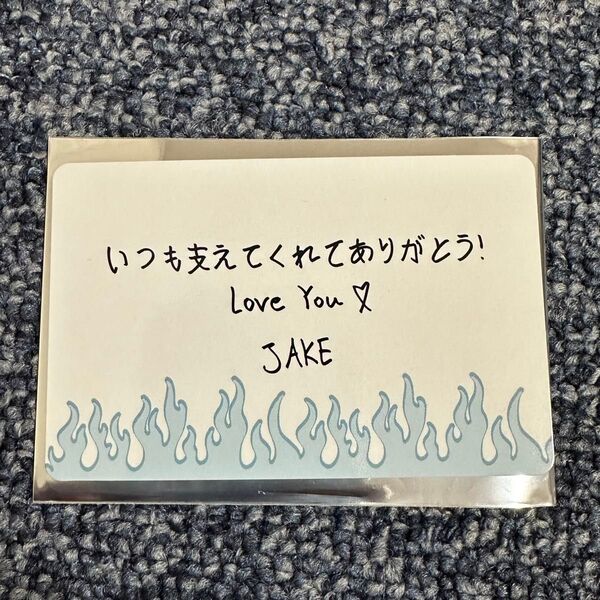 いつも支えてくれてありがとう!
Love You ♡
JAKE